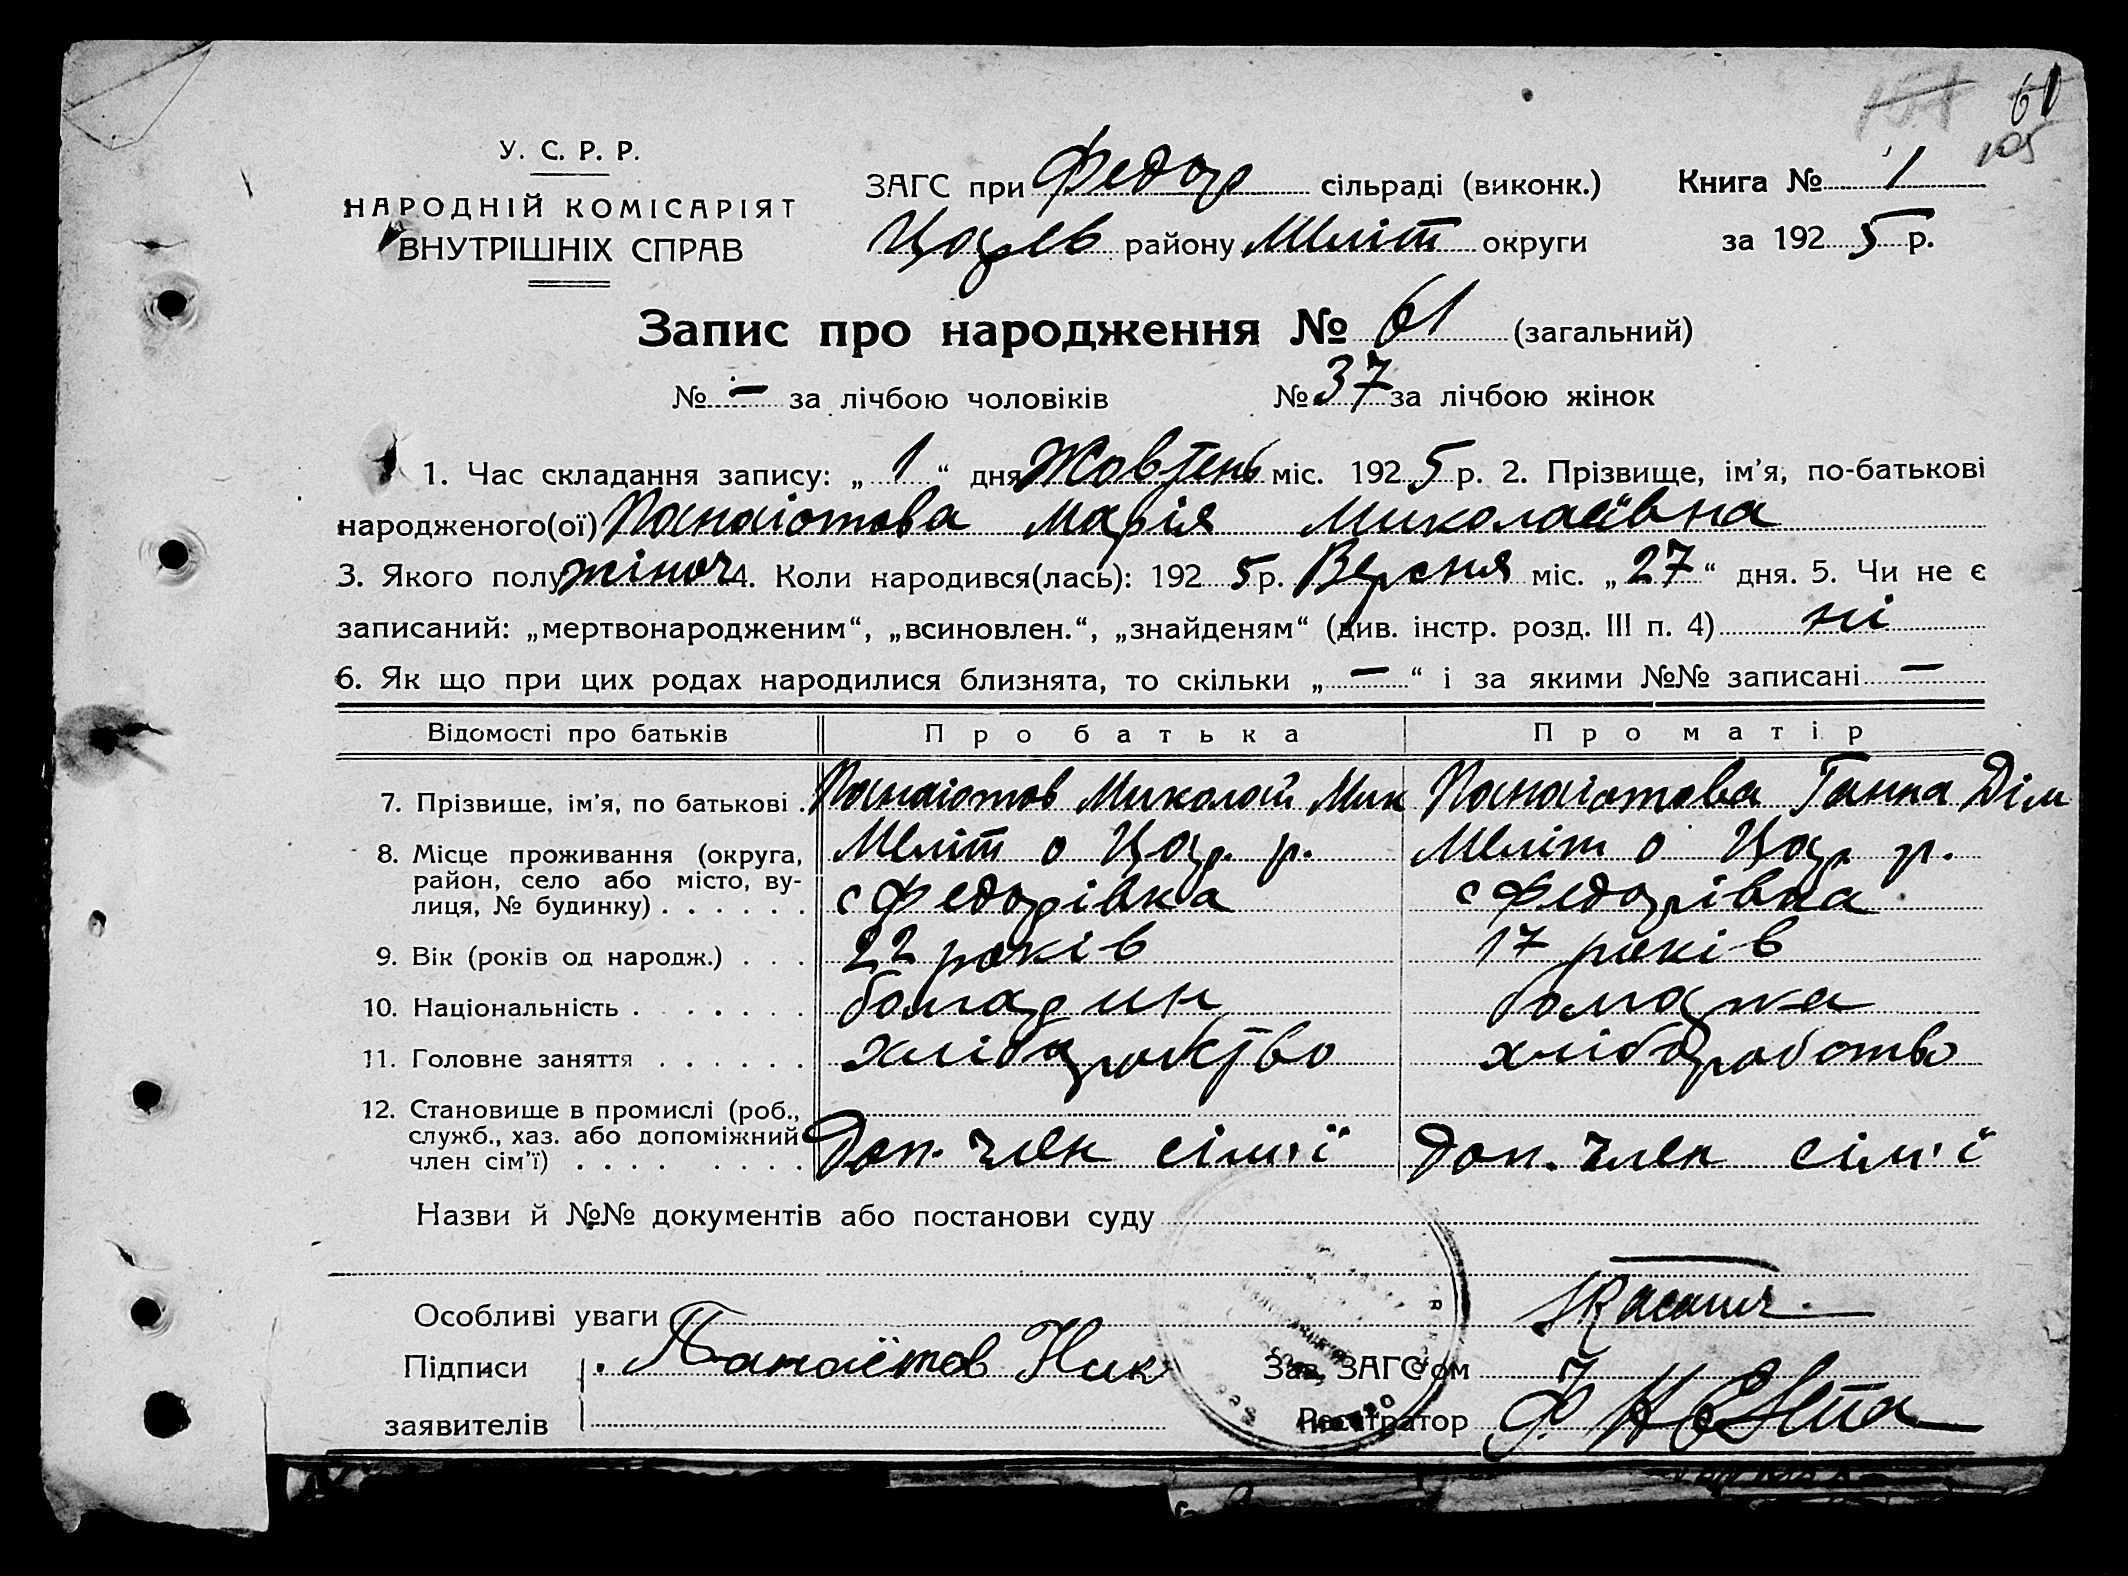 61
105
У. С. Р. Р.
НАРОДНІЙ КОМІСАРІЯТ
ВНУТРІШНІХ СПРАВ
ЗАГС при Федор сільраді (виконк.)
Книга № 1
Царев району Меліт округи
за 1925 р.
Запис про народження № 61 (загальний)
№ — за лічбою чоловіків № 37 за лічбою жінок
1. Час складання запису: „1“ дня Жовтень міс. 1925 р. 2. Прізвище, ім’я, по-батькові
народженого(ої) Панаіотова Марія Миколаївна
3. Якого полу жіноч 4. Коли народився(лась): 1925 р. Версня міс. „27“ дня. 5. Чи не є
записаний: „мертвонародженим“, „всиновлен.“, „знайденям“ (див. інстр. розд. III п. 4) ні
6. Як що при цих родах народилися близнята, то скільки „—“ і за якими №№ записані —
Відомості про батьків Про батька Про матір
7. Прізвище, ім’я, по батькові . Панаіотов Миколай Мик Панаіотова Ганна Дім
8. Місце проживання (округа, район, село або місто, вулиця, № будинку) . . . . . .
Меліт о Цар. р. Меліт о Цар р.
с Федорівка с Федорівка
9. Вік (років од народж.) . . . 22 років 17 років
10. Національність . . . . . . болгарин болгарка
11. Головне заняття . . . . . . хліборобство
12. Становище в промислі (роб., служб., хаз. або допоміжний член сім’ї) . . . . . . . .
Доп. член сім'ї Доп. член сім'ї
Назви й №№ документів або постанови суду
Особливі уваги
Підписи Панаіетов Ник Зав. ЗАГС’ом
заявителів Реєстратор